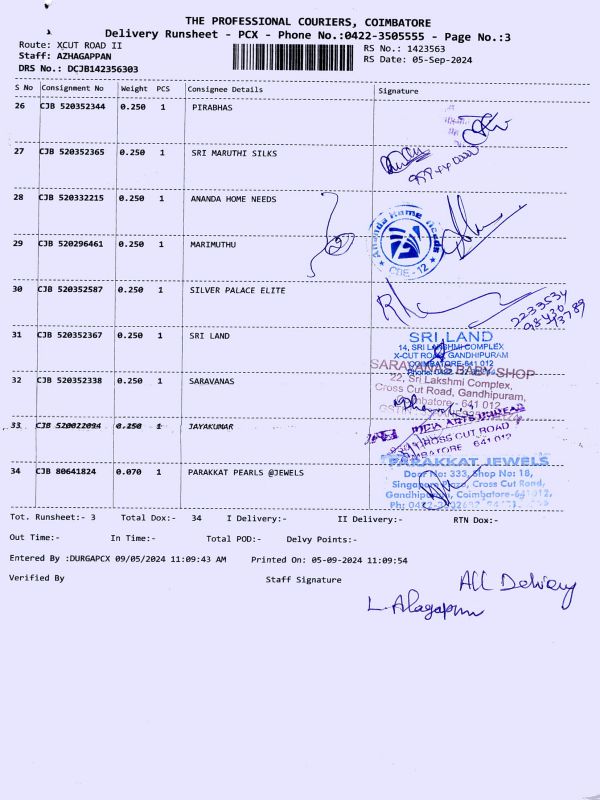 THE PROFESSIONAL COURIERS, COIMBATORE
Delivery Runsheet - PCX - Phone No.:0422-3505555 - Page No.:3
Route: XCUT ROAD II
RS No.: 1423563
Staff: AZHAGAPPAN
RS Date: 05-Sep-2024
DRS No.: DCJB142356303
S No Consignment No Weight PCS Consignee Details Signature
26 CJB 520352344 0.250 1 PIRABHAS
27 CJB 520352365 0.250 1 SRI MARUTHI SILKS
28 CJB 520332215 0.250 1 ANANDA HOME NEEDS
Ananda Home Needs
CBE - 12
29 CJB 520296461 0.250 1 MARIMUTHU
30 CJB 520352587 0.250 1 SILVER PALACE ELITE
2233534
98430
13789
31 CJB 520352367 0.250 1 SRI LAND
SRI LAND
14, SRI LAKSHMI COMPLEX
X-CUT ROAD GANDHIPURAM
COIMBATORE-641 012
32 CJB 520352338 0.250 1 SARAVANAS
SARAVANAS BABY SHOP
22, Sri Lakshmi Complex,
Cross Cut Road, Gandhipuram,
Coimbatore - 641 012
33 CJB 520022094 0.250 1 JAYAKUMAR
INDIA ARTS BUREAU
CROSS CUT ROAD
COIMBATORE 641 012
34 CJB 80641824 0.070 1 PARAKKAT PEARLS @JEWELS
PARAKKAT JEWELS
Door No: 333, Shop No: 18,
Singapore Plaza, Cross Cut Road,
Gandhipuram, Coimbatore-641 012,
Tot. Runsheet:- 3 Total Dox:- 34 I Delivery:- II Delivery:- RTN Dox:-
Out Time:- In Time:- Total POD:- Delvy Points:-
Entered By :DURGAPCX 09/05/2024 11:09:43 AM Printed On: 05-09-2024 11:09:54
Verified By Staff Signature
All Delivery
L. Alagappan